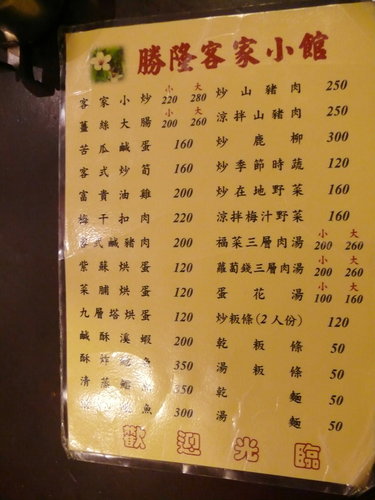 勝隆客家小館
小 大
客家小炒 220 280
小 大
薑絲大腸 200 260
苦瓜鹹蛋 160
客式炒筍 160
富貴油雞 200
梅干扣肉 220
式鹹豬肉 200
紫蘇烘蛋 120
菜脯烘蛋 120
九層塔烘蛋 120
鹹酥溪蝦 200
酥炸 350
清蒸 350
魚 300
炒山豬肉 250
涼拌山豬肉 250
炒鹿柳 300
炒季節時蔬 120
炒在地野菜 160
涼拌梅汁野菜 160
小 大
福菜三層肉湯 200 260
小 大
蘿蔔錢三層肉湯 200 260
小 大
蛋花湯 100 160
炒粄條(2人份) 120
乾粄條 50
湯粄條 50
乾麵 50
湯麵 50
歡迎光臨